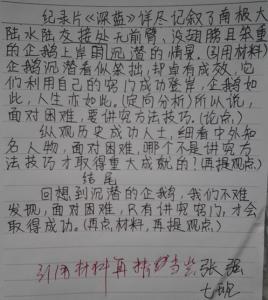 纪录片《深蓝》详尽记叙了南极大
陆水陆交接处无前臂、没翅膀且笨重
的企鹅上岸困沉潜的情景。(引用材料)
企鹅沉潜看似笨拙,却卓有成效,它
们利用自己的窍门成功登岸,企鹅如
此,人生亦如此。(定向分析)所以说,
面对困难,要讲究方法技巧。(论点)
纵观历史成功人士,细看中外知
名人物,面对困难,哪个不是讲究方
法技巧才取得重大成就的?(再提观点)
结尾
回想到沉潜的企鹅,我们不难
发现,面对困难,只有讲究窍门,才会
取得成功。(再点材料,再提观点)
引用材料再 张强
七班